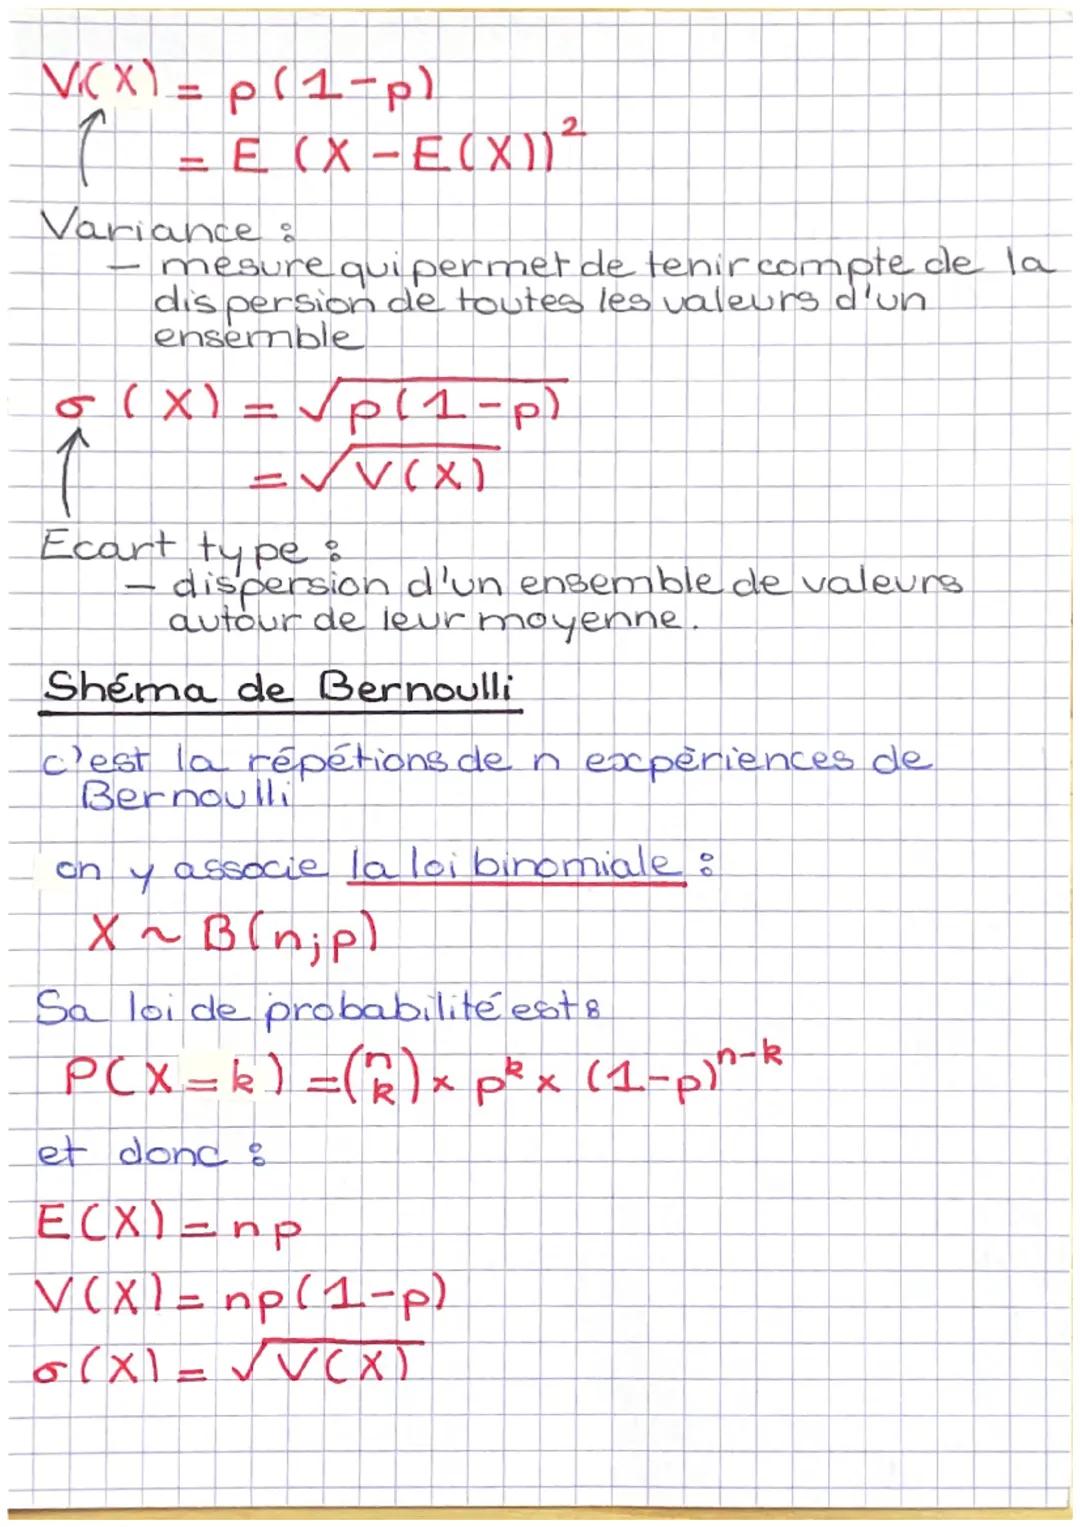 V(X) = p(1-p)
= E (X - E(X))²
Variance :
- mesure qui permet de tenir compte de la
dispersion de toutes les valeurs d'un
ensemble
σ (X) = √p(1-p)
= √V(X)
Ecart type :
- dispersion d'un ensemble de valeurs
autour de leur moyenne.
Shéma de Bernoulli
c'est la répétions de n expériences de
Bernoulli
on y associe la loi binomiale :
X ~ B(n;p)
Sa loi de probabilité est :
P(X=k) = (n k) × pᵏ × (1-p)ⁿ⁻ᵏ
et donc :
E(X) = np
V(X) = np(1-p)
σ(X) = √V(X)